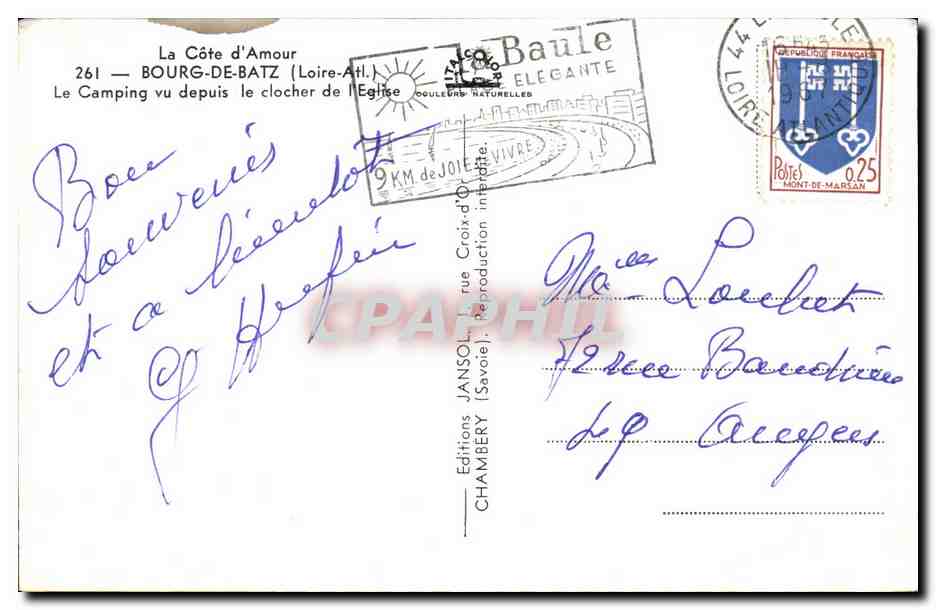 La Côte d'Amour
261 — BOURG-DE-BATZ (Loire-Atl.)
Le Camping vu depuis le clocher de l'Eglise
la Baule
ELEGANTE
9 KM de JOIE VIVRE
ITALCOLOR
COULEURS NATURELLES
44 L
LOIRE ATLANTIQUE
REPUBLIQUE FRANÇAISE
POSTES 0,25
MONT-DE-MARSAN
Bon
souvenirs
et a bientot
Editions JANSOL, 1, rue Croix-d'Or
CHAMBERY (Savoie). Reproduction interdite.
CPAPHIL
Loubet
72 rue
49 Angers